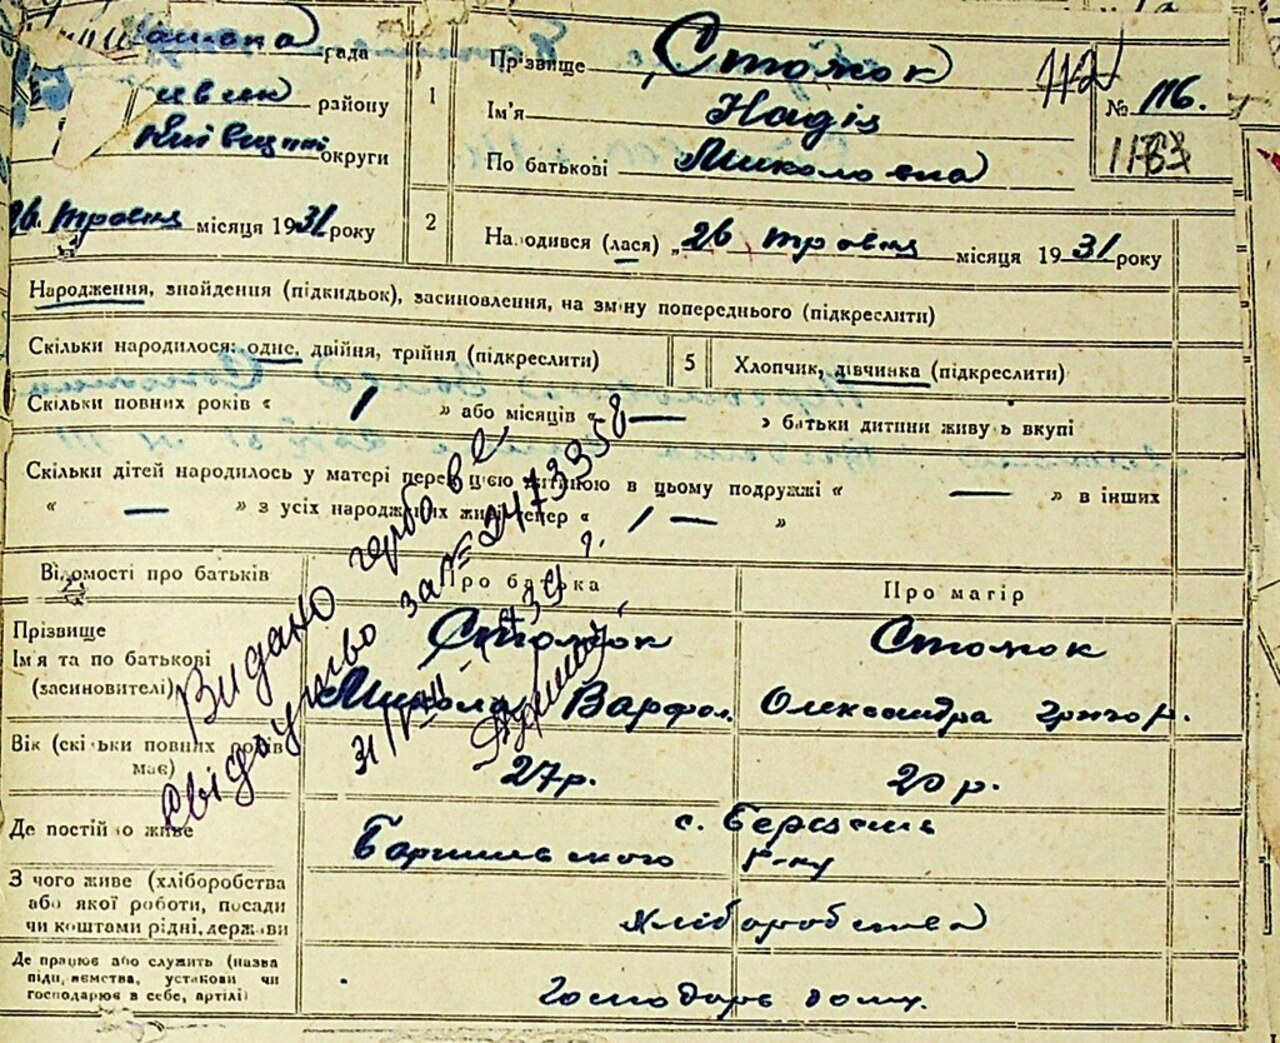 рада
району
Київщини округи
26 травня місяця 1931 року
1
Прізвище Стомок
Ім'я Надія
По батькові Миколовна
112
№ 116.
1183
2
Народився (лася) „26 травня місяця 1931 року
Народження, знайдення (підкидьок), засиновлення, на зміну попереднього (підкреслити)
Скільки народилося: одне, двійня, трійня (підкреслити)
5
Хлопчик, дівчинка (підкреслити)
Скільки повних років « 1 » або місяців « — » батьки дитини живуть вкупі
Скільки дітей народилось у матері перед цією дитиною в цьому подружжі « — » в інших
« — » з усіх народжених живі тепер « 1 — »
Видано гербове
свідоцтво за № 2473358
31/VIII 1939 г.
Відомості про батьків
Про батька
Про матір
Прізвище
Ім'я та по батькові
(засиновителі)
Стомок
Микола Варфол.
Стомок
Олександра Григор.
Вік (скільки повних років
має)
27 р.
20 р.
Де постійно живе
с. Березань
Баришівського р-ну
З чого живе (хліборобства
або якої роботи, посади
чи коштами рідні, держави
хліборобства
Де працює або служить (назва
підприємства, установи чи
господарює в себе, артілі)
Господарь дому.